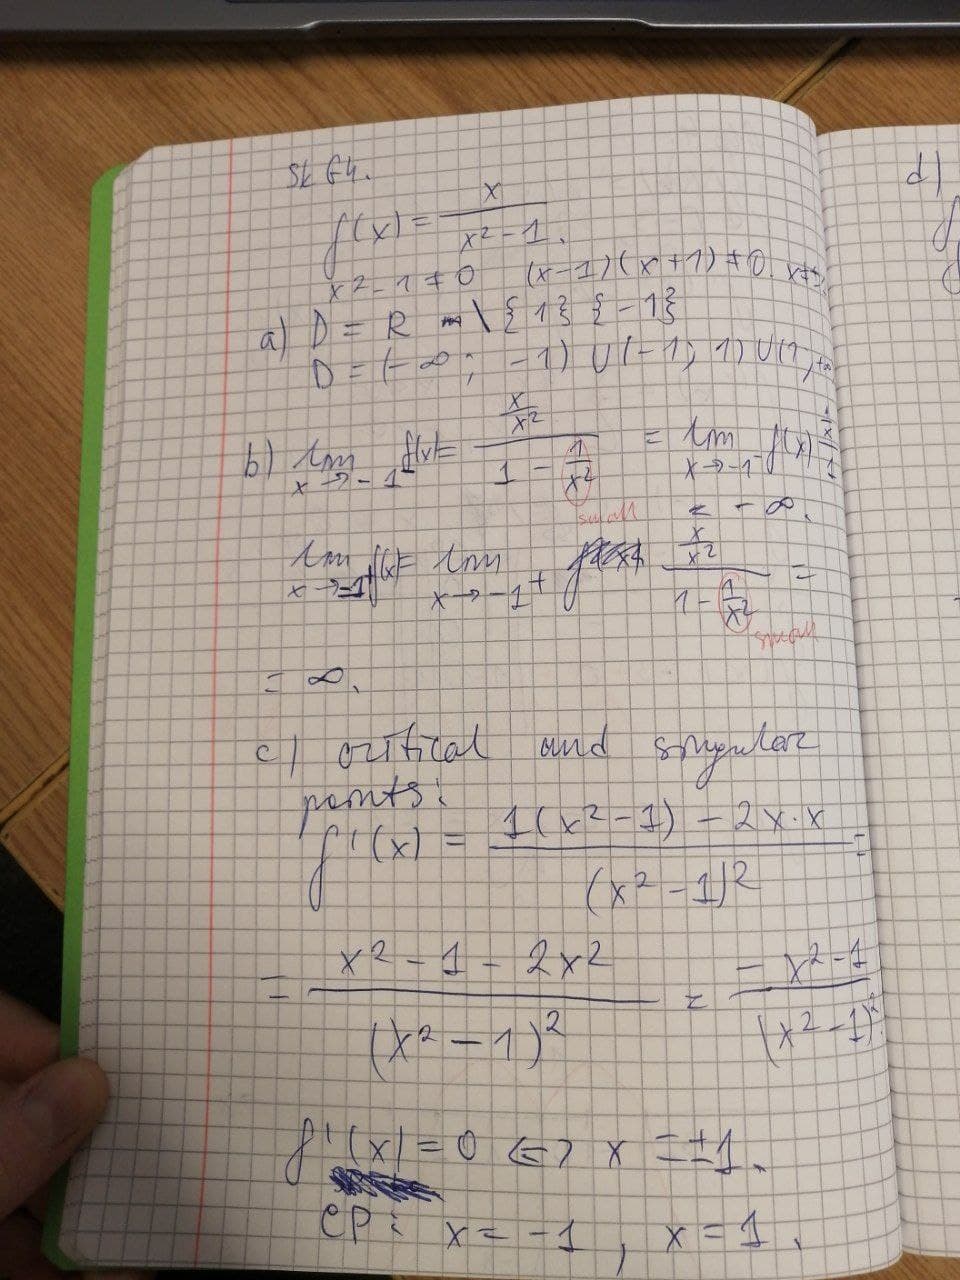 Sk 64.
f(x) = x / (x² - 1).
x² - 1 ≠ 0 (x-1)(x+1) ≠ 0. x≠
a) D = R \ {1} {-1}
D = (-∞; -1) ∪ (-1; 1) ∪ (1, +∞
b) lim x→-1 f(x) = (x/x²) / (1 - 1/x²) = lim x→-1⁻ f(x)
small = -∞.
lim x→-1⁺ f(x) = lim x→-1⁺ (x/x²) / (1 - 1/x²) =
small
= ∞.
c) critical and singular
points:
f'(x) = (1(x² - 1) - 2x·x) / (x² - 1)² =
= (x² - 1 - 2x²) / (x² - 1)² = (-x² - 1) / (x² - 1)²
f'(x) = 0 <=> x = ±1.
CP: x = -1, x = 1.
d)